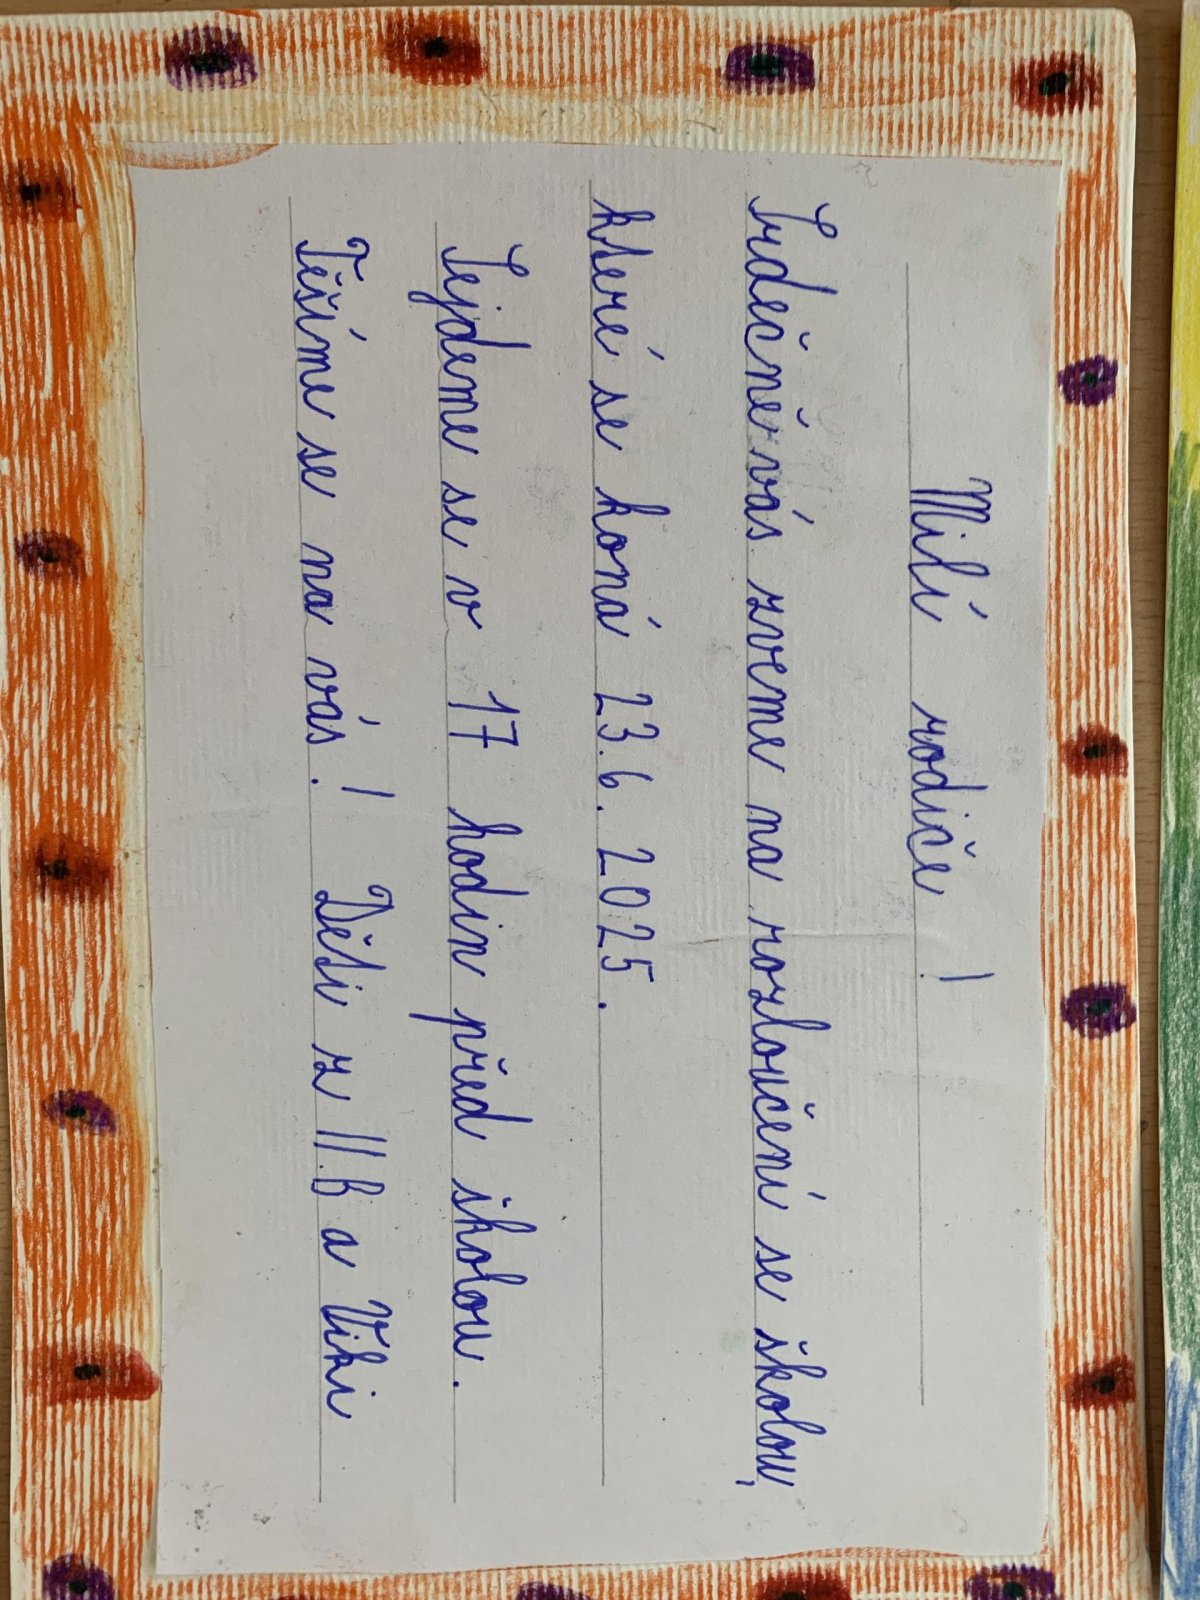 Milí rodiče!
Srdečně vás zveme na rozloučení se školou,
které se koná 23. 6. 2025.
Sejdeme se v 17 hodin před školou.
Těšíme se na vás! Děti z II.B a Viki